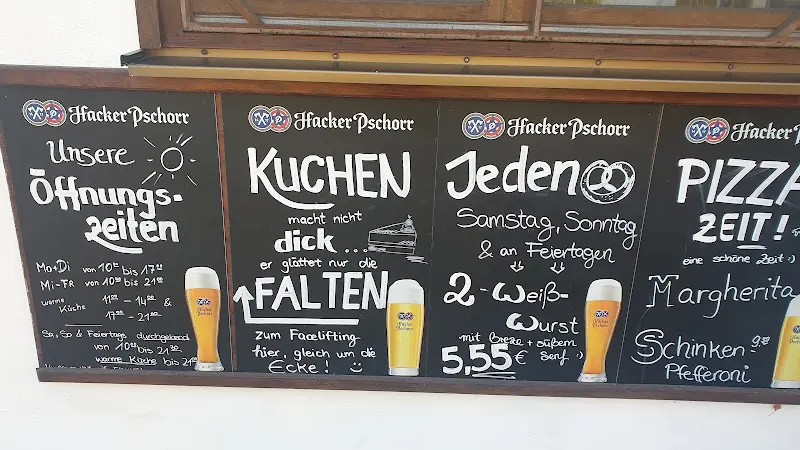 Hacker-Pschorr
Unsere
Öffnungs-
zeiten
Mo+Di von 10⁰⁰ bis 17⁰⁰
Mi-FR von 10⁰⁰ bis 21⁰⁰
warme Küche 11⁰⁰ - 14⁰⁰ &
17⁰⁰ - 21⁰⁰
Sa, So & Feiertags durchgehend
von 10⁰⁰ bis 21³⁰
warme Küche bis 21⁰⁰
Hacker-Pschorr
KUCHEN
macht nicht
dick...
er glättet nur die
FALTEN
zum Facelifting
hier, gleich um die
Ecke! :)
Hacker-Pschorr
Jeden
Samstag, Sonntag
& an Feiertagen
2-Weiß-
wurst
mit Breze + süßem
5,55€ Senf :)
Hacker-Pschorr
PIZZA
ZEIT!
eine schöne Zeit :)
Margherita
Schinken 9.80
Pfefferoni